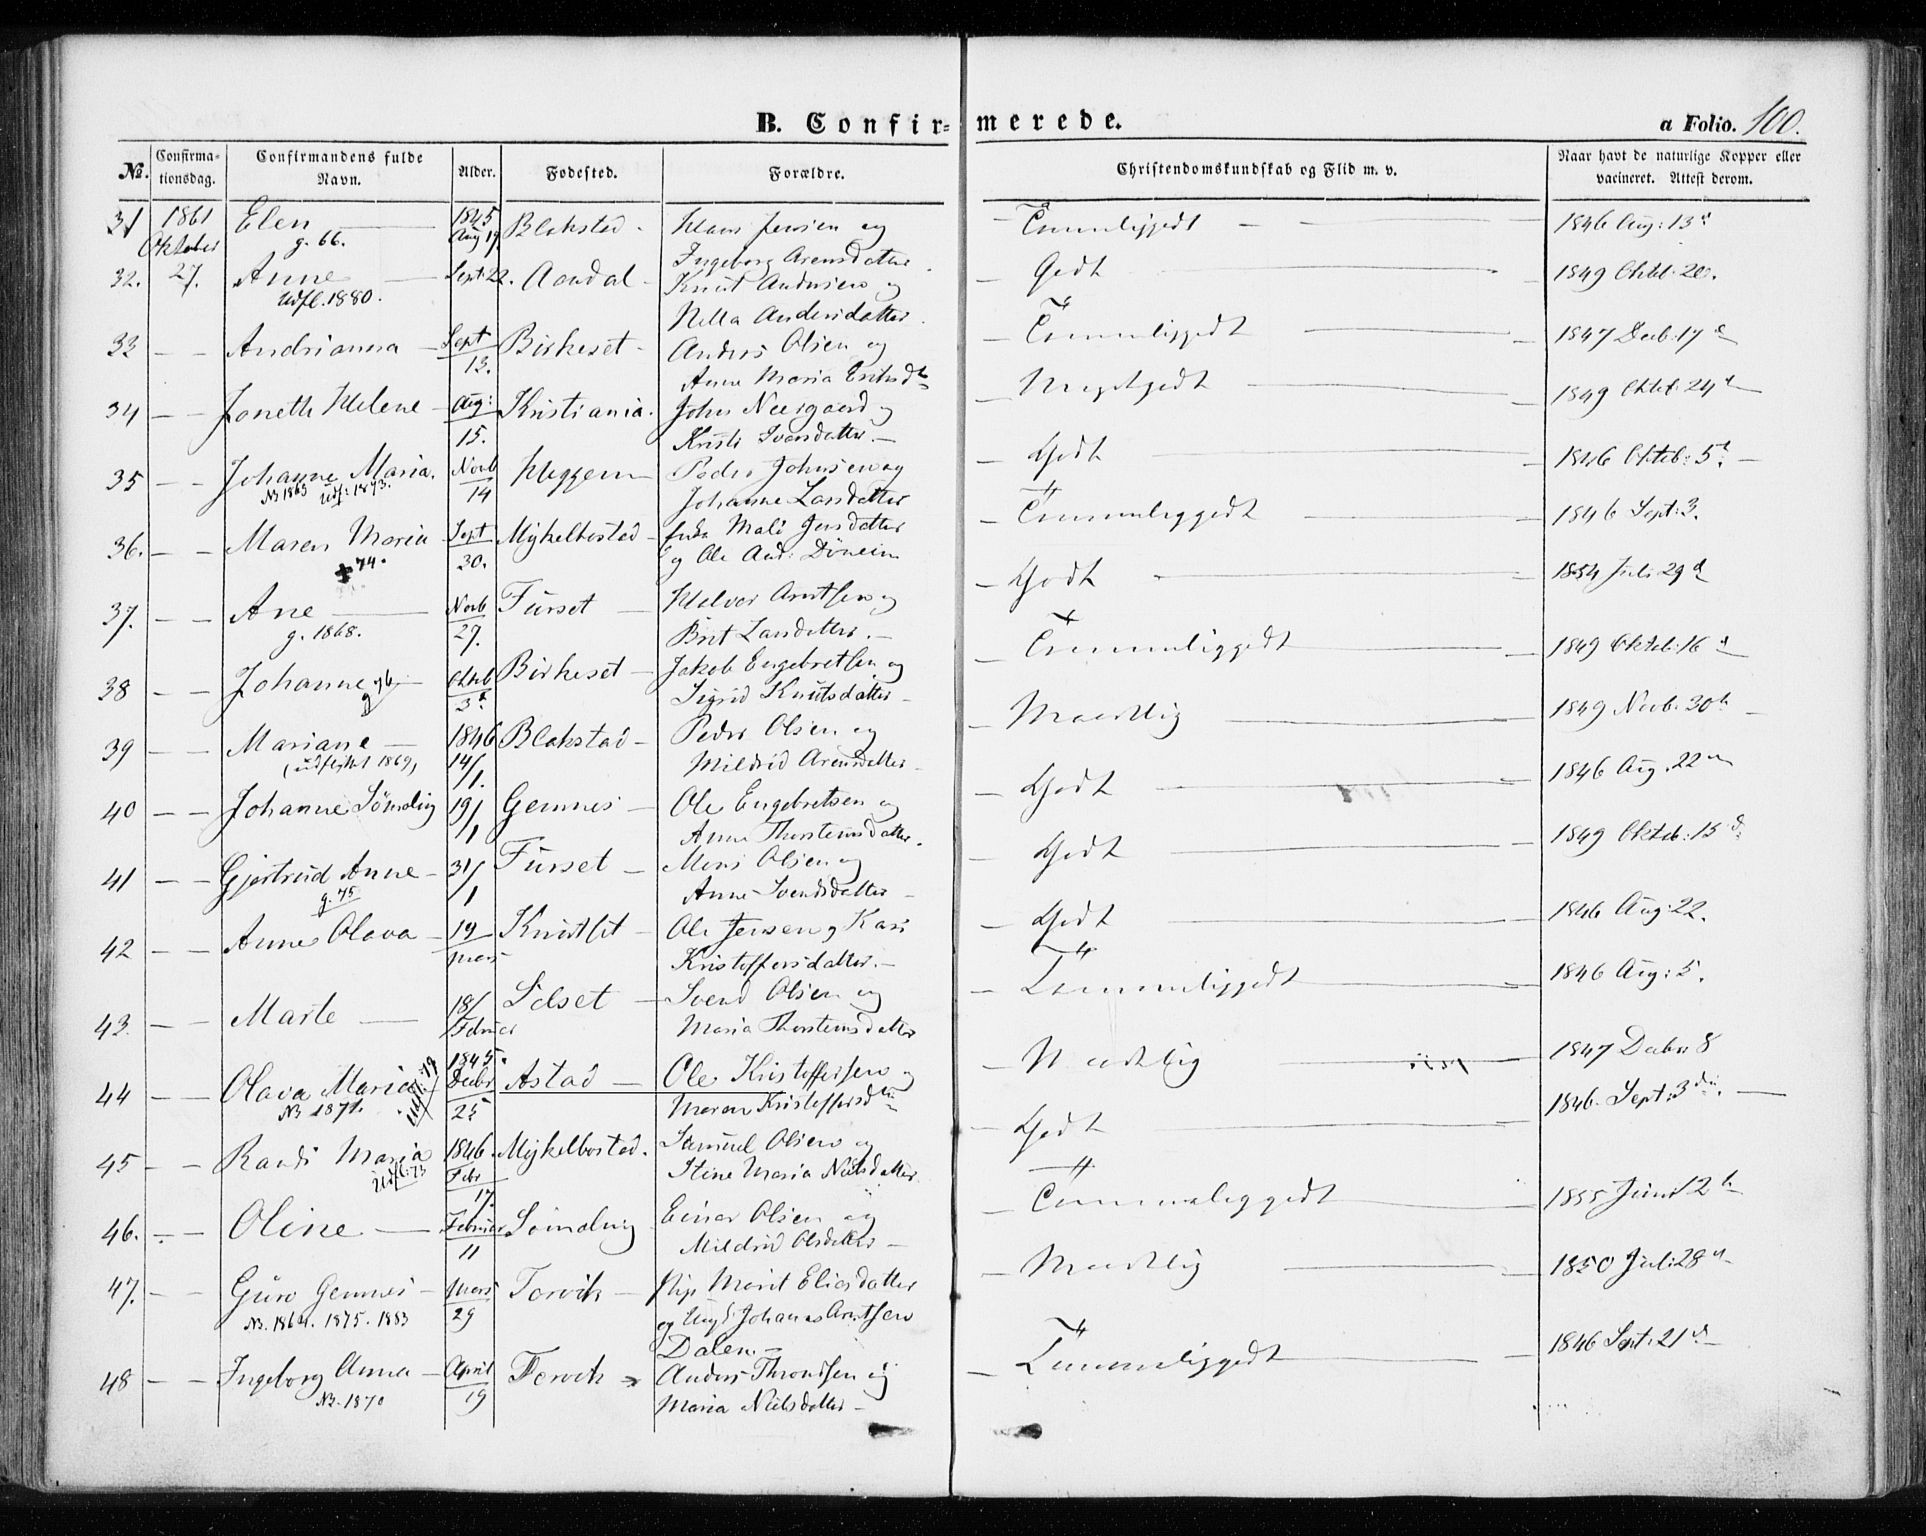 B. Confir- merede.
a Folio. 100.
No. Confirmationsdag. Confirmandens fulde Navn. Alder. Fødested. Forældre. Christendomskundskab og Flid m. v. Naar havt de naturlige Kopper eller vacineret. Attest derom.
31 1861 Oktober Elen — 1845 Aug 19 Blakstad - Klaus Jensen og Ingeborg Arensdatter 1846 Aug: 13
g. 66.
32. 27. Anne — Sept. 22. Aandal - Knut Andersen og Godt 1849 Oktb. 20.
Udfl. 1880. Andersdatter
33 — — Andrianna — Sept 13. Birkeset - Anders Olsen og Anne Maria 1847 Decb. 17
34 — — Jonette Helene — Aug: 15. Kristiania. John Neergaard og Kristi Ivarsdatter — Megetgodt 1849 Oktob. 24
35 — — Johanne Maria. Novb 14 Heggem Peder Johnsen og Johanne Larsdatter — Godt 1846 Oktob: 5
N3 1863 Udf: 1873.
36. — — Maren Maria Sept 30. Mykelbostad - Mali Jensdatter og Ole And: 1846 Sept: 3.
✝ 74.
37. — — Ane — Novb 27. Furset — Halvor Arntsen og Brit Larsdatter. — Godt 1854 Juli 29
g. 1868.
38 — — Johanne Oktb 3 Birkeset - Jakob Engebretsen og Sigrid Knutsdatter - 1849 Oktob. 16
39 — — Mariane — 1846 14/1. Blakstad - Peder Olsen og Mildrid Arensdatter — Maadelig 1849 Novb. 30
(udflyttet 1869)
40 — — Johanne Sømdvig 19/1 Gemnes - Ole Engebretsen og Anne Thorstensdatter. — Godt 1846 Aug. 22
41 — — Gjertrud Anne - 31/1 Furset — Mons Olsen og Anne Svendsdatter — Godt 1849 Oktob: 15
g. 75
42 — — Anne Olava — 19 Mars Ole Jensen og Kari Kristoffersdatter. — Godt 1846 Aug: 22.
43. — — Marte — 18/Februar Solset — Svend Olsen og Maria Thorstensdatter 1846 Aug: 5.
44 — — Olava Maria 1845. Decbr 25 Astad — Ole Kristoffersen og Maren Kristoffersd Maadelig 1847 Decbr 8
N3 1871.
45 — — Randi Maria 1846. Febr 17. Mykelbostad. Samuel Olsen og Stine Maria Nielsdatter — Godt 1846. Sept: 3
Udfl: 73
46. — — Oline — Februar 11 Sømdvig Einar Olsen og Mildrid Olsdatter — 1855 Juni 12
47. — — Guro Gemnes — Mars 29 Torvik — Marit Eliasdatter og Ungk Johannes Arntsen Dalen — Maadelig 1850 Juli 28
N3. 1864. 1875. 1883
48 — — Ingeborg Anna — April 19 Torvik Anders Throndsen og Maria Nielsdatter — 1846 Sept. 21
N3. 1870